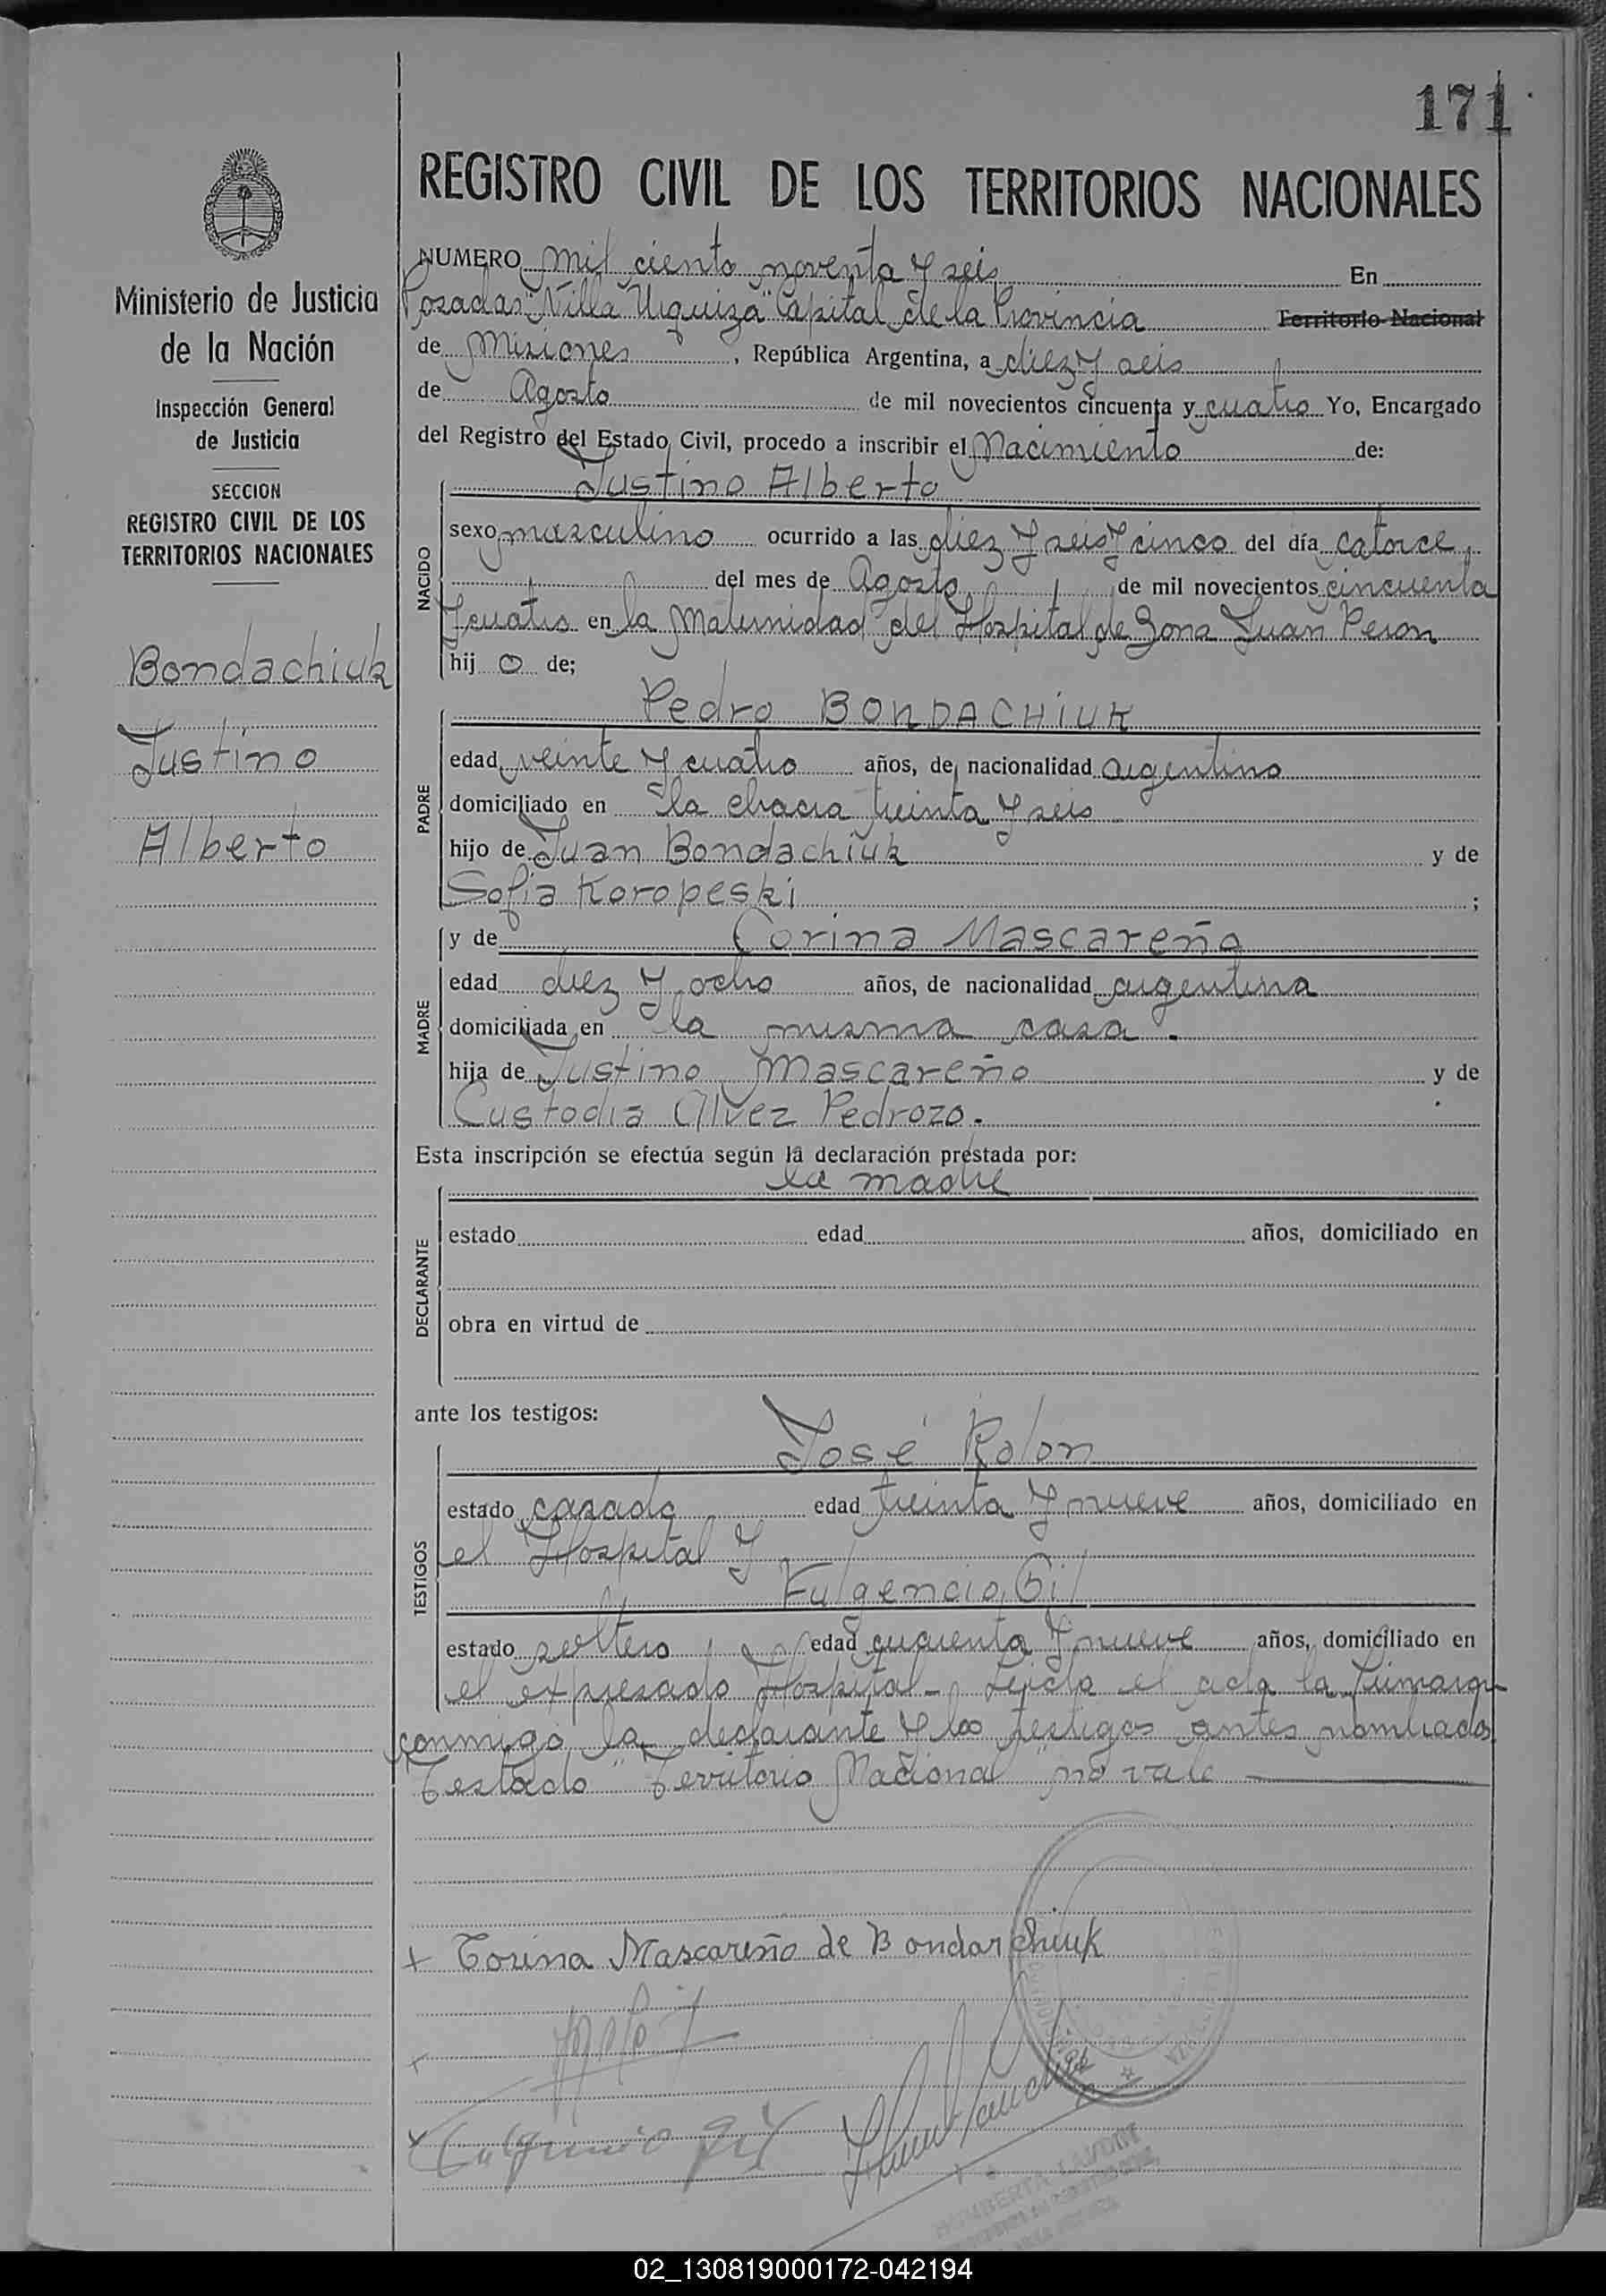 171
REGISTRO CIVIL DE LOS TERRITORIOS NACIONALES
Ministerio de Justicia
de la Nación
Inspección General
de Justicia
SECCION
REGISTRO CIVIL DE LOS
TERRITORIOS NACIONALES
Bondachiuk
Justino
Alberto
NUMERO mil ciento noventa y seis En
Posadas "Villa Urquiza" Capital de la Provincia Territorio Nacional
de Misiones, República Argentina, a diez y seis
de Agosto de mil novecientos cincuenta y cuatro Yo, Encargado
del Registro del Estado Civil, procedo a inscribir el Nacimiento de:
Justino Alberto
NACIDO
sexo masculino ocurrido a las diez y seis y cinco del día catorce
del mes de Agosto de mil novecientos cincuenta
y cuatro en la Maternidad del Hospital de Zona Juan Peron
hij o de;
Pedro BONDACHIUK
PADRE
edad veinte y cuatro años, de nacionalidad argentino
domiciliado en la chacra treinta y seis
hijo de Juan Bondachiuk y de
Sofia Koropeski ;
y de Corina Mascareño
MADRE
edad diez y ocho años, de nacionalidad argentina
domiciliada en la misma casa.
hija de Justino Mascareño y de
Custodia Alvez Pedrozo.
Esta inscripción se efectúa según la declaración prestada por:
la madre
DECLARANTE
estado edad años, domiciliado en
obra en virtud de
ante los testigos:
José Rolon
TESTIGOS
estado casado edad treinta y nueve años, domiciliado en
el Hospital y
Fulgencio Gil
estado soltero edad cuarenta y nueve años, domiciliado en
el expresado Hospital - Leida el acta la firmaron
conmigo la declarante y los testigos antes nombrados
Testado "Territorio Nacional" no vale
x Corina Mascareño de Bondarchiuk
x
x Fulgencio Gil
02_130819000172-042194